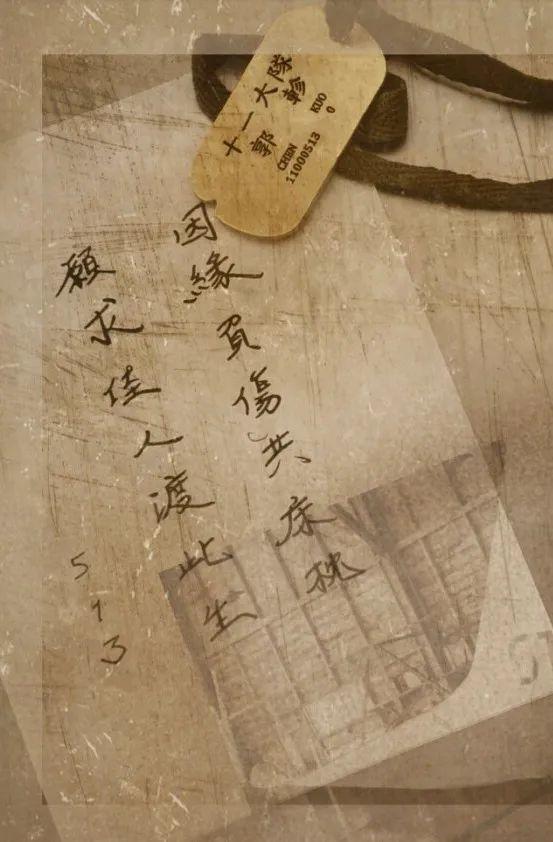 十一大隊
郭軫
CHEN KUO
11000513 0
因緣負傷共床枕
願求佳人渡此生
513
ST